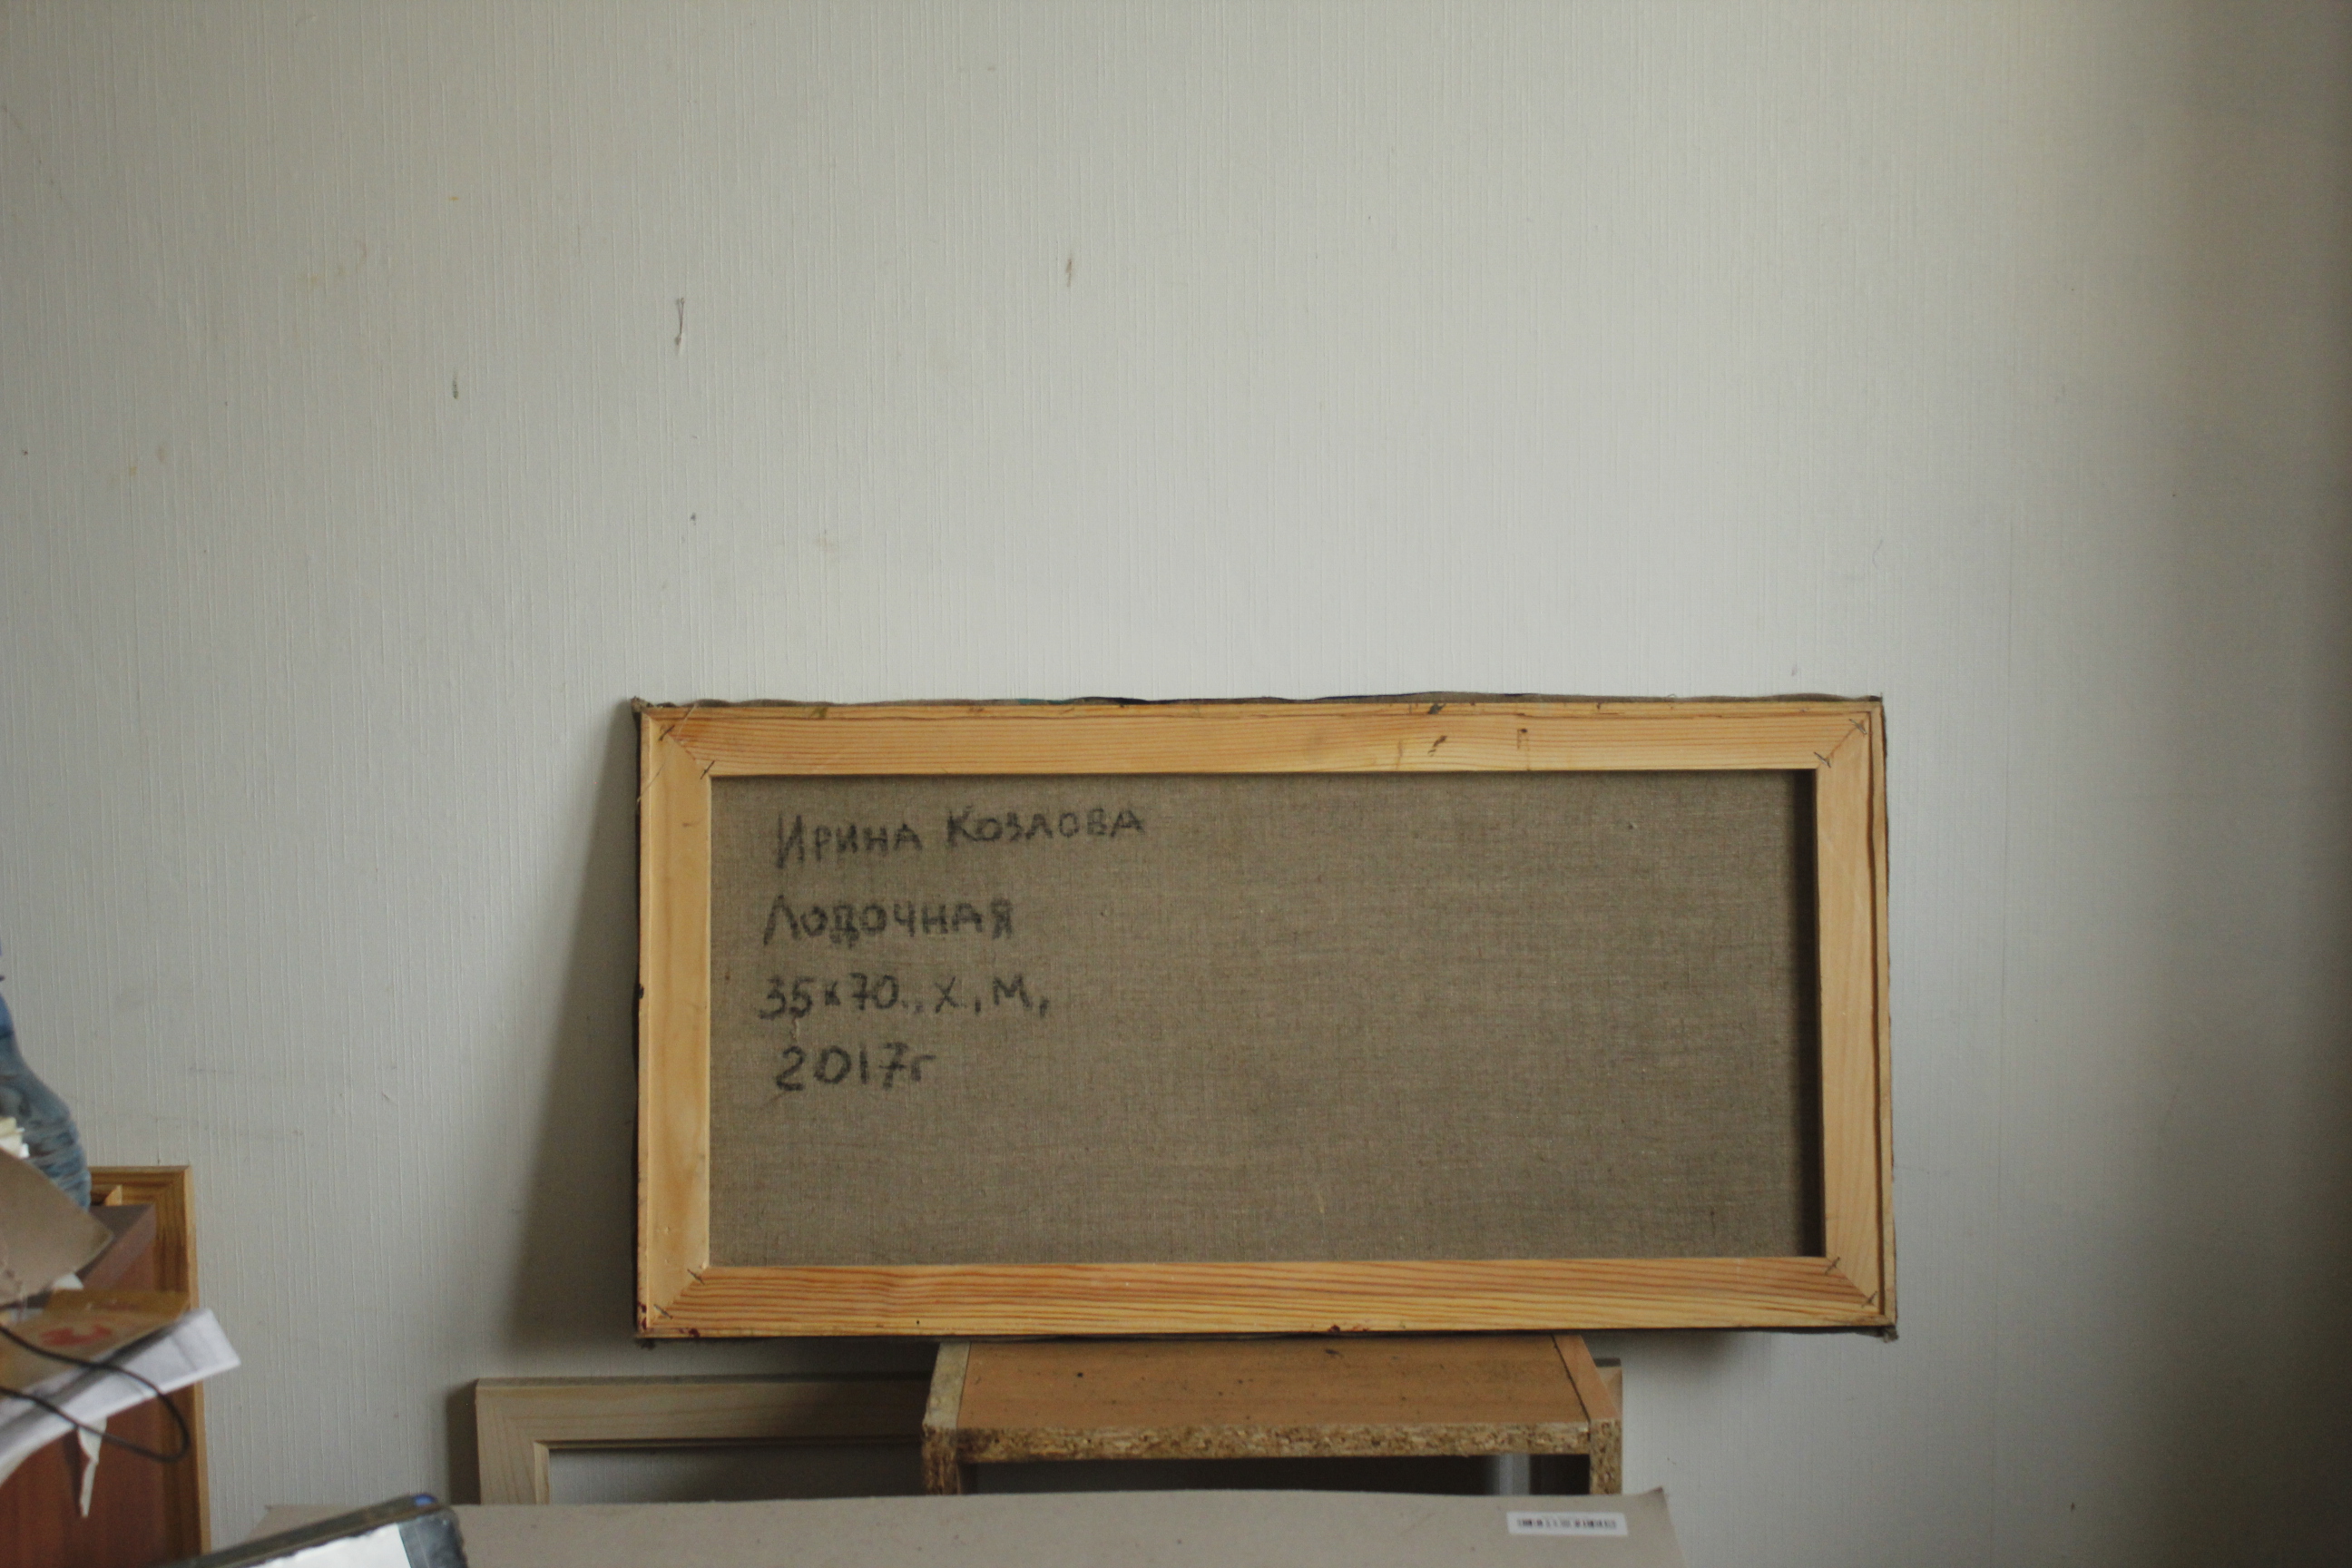 Ирина Козлова
Лодочная
35x70., х., м,
2017г